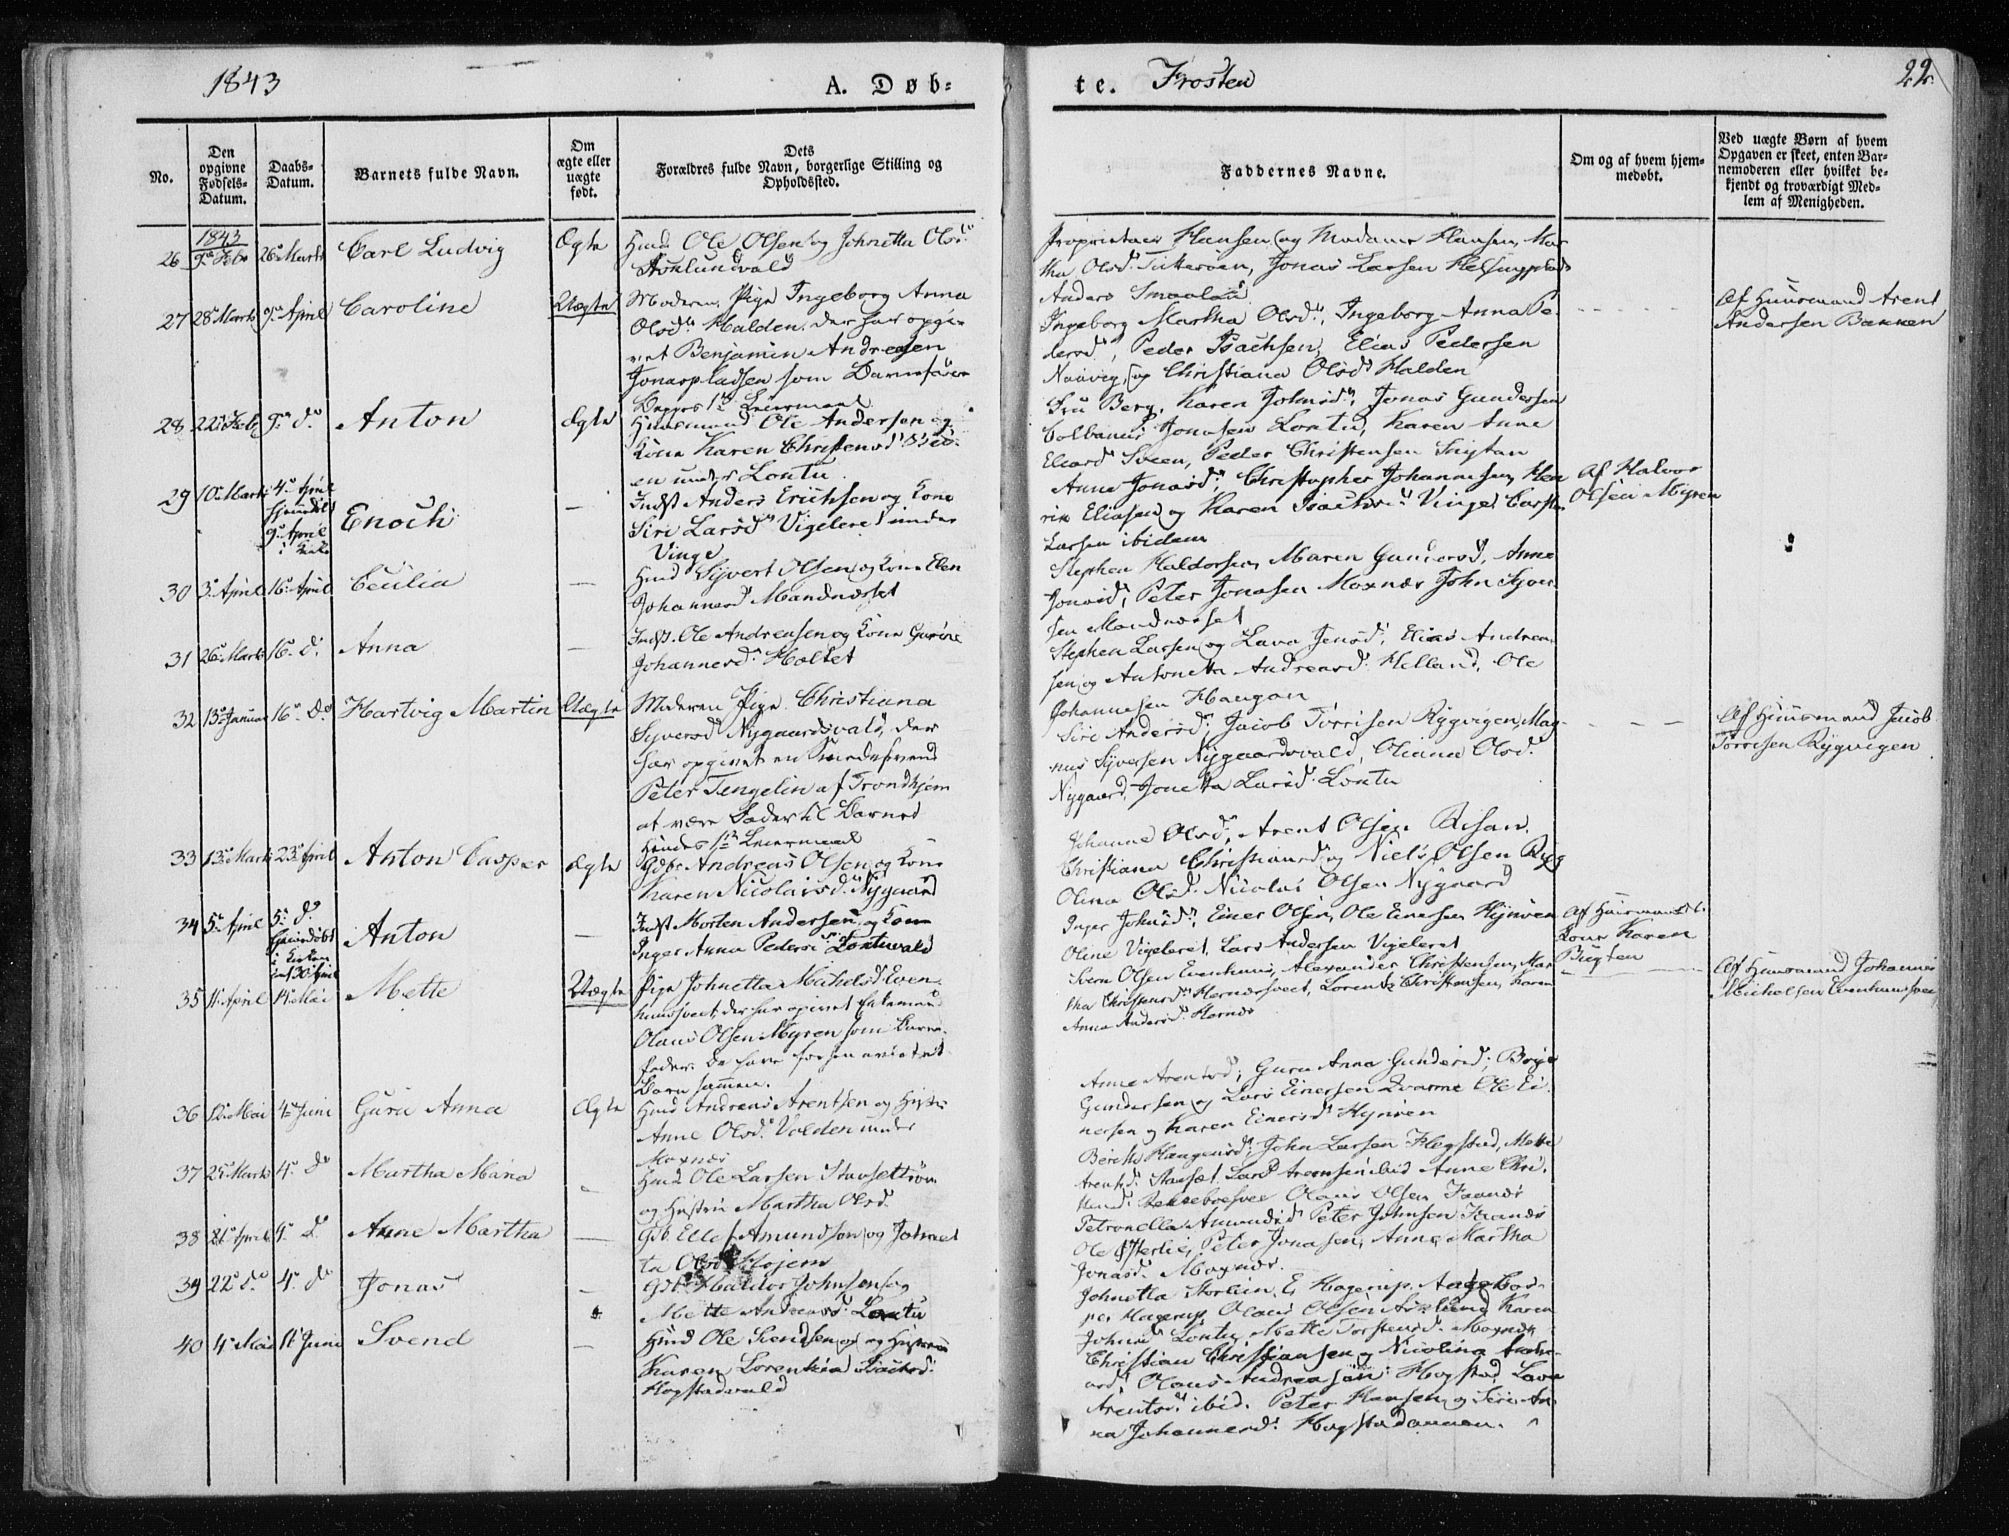 1843
A. Døb-
te. Frosten
22.
No.
Den opgivne Fødsels-Datum.
Daabs-Datum.
Barnets fulde Navn.
Om ægte eller uægte født.
Dets Forældres fulde Navn, borgerlige Stilling og Opholdssted.
Faddernes Navne.
Om og af hvem hjem-
medøbt.
Ved uægte Børn af hvem
Opgaven er skeet, enten Bar-
nemoderen eller hvilket be-
kjendt og troværdigt Med-
lem af Menigheden.
1843
26 9de Feb 26de Marts Carl Ludvig Ægte
Huusmd Ole Olsen og Johnetta Olsd
Proprietair Hansen og Madame Hansen, Mar-
tha Olsd. Jonas Larsen
Anders
27 28 Marts 9de April Caroline Uægte
Moderen, Pige Ingeborg Anna
Olsdr Halden, der har opgi-
vet Benjamin Andreasen
Jonaspladsen som Barnefader
Begges 1ste Leiermaal
Ingeborg Martha Olsdr, Ingeborg Anna Pe-
dersdr, Peder Isachsen, Elias Pedersen
Naavig, og Christiana Olsdr Halden
Af Huusmand Arent
Andersen Bakken
28 22de Feb 9de do Anton Ægte
Huusmand Ole Andersen og
Kone Karen Christensdr
en under Lontu
Fru Berg, Karen Johnsdr, Jonas Gundersen
Colbanus Jonasen Lontu, Karen Anne
Eliasd Sveen, Peder Christensen
29 10de Marts 4de April
hjemdøbt
9de April
i Kirke
Enoch —
Indst Anders Erichsen og Kone
Siri Larsdr Vigeleret under
Vinge
Anne Jonasdr, Christopher Johannesen, Hen-
rik Eliasen og Karen Isachsdr Vinge, Carsten
Larsen ibidem
Af Halvor
Olsen Myren
30 3de April 16de April Cecilia —
Huusmd Sjvert Olsen og Kone Elen
Johannesd Mandnæsset
Stephen Haldorsen, Maren Gundersd, Anne
Jonasd, Peter Jonasen Moxnæs John Sjver-
sen Mandnæsset
31 26de Marts 16de do Anna —
Indst. Ole Andreasen og Kone Gurine
Johannesdr Holtet
Stephen Larsen og Lava Jensd, Elias Andrea-
sen og Antonetta Andreasd Helland, Ole
Johannesen Haugan
32 13de Januar 16de Do Hartvig Martin Uægte
Moderen Pige Christiana
Syversd Nygaardsvald, der
har opgivet en Smedesvend
Peter Tengelin af Trondhjem
at være Fader til Barnet
Hendes 1ste Leiermaal
Siri Andersd, Jacob Torrisen Rygvigen, Mag-
nus Sjversen Nygaardsvald, Oliana Olsd
Nygaard, Jonetta Larsd. Lontu
Af Huusmand Jacob
Torrisen Rygvigen
33 13de Marts 23de April Anton Casper Ægte
Gdbr Andreas Olsen og Kone
Karen Nicolaisdr Nygaard
Johanne Olsdr, Arent Olsen Risan
Christiana Christiansd og Niels Olsen Rygg
Olina Olsd. Nicolai Olsen Nygaard
34 5de April 5de do
hjemdøbt
i Kirken
30 April
Anton —
Indst Morten Andersen og Kone
Inger Anna Pedersdr Lontuvald
Inger Johnsdr, Einer Olsen, Ole Einersen Hynnen
Oline Vigeleret, Lars Andersen Vigeleret
Af Huusmandst.
Kone Karen
Bugten
35 11 April 14 Mai Mette Uægte
Pige Johnetta Michelsd Even-
huusveet, der har opgivet Enkemand
Olaus Olsen Myren som Barne-
fader. De have forhen avlet et
Barn sammen.
Svern Olsen Evenhuus, Alexander Christensen, Mar-
tha Christensdr Hernæsveet, Lorentz Christensen, Karen
Anna Andersdr Hernæs
Af Huusmand Johannes
Michelsen Evenhuusveet
36 12 Mai 4de Juni Guru Anna Ægte
Huusmd Andreas Arentsen og Hustru
Anne Olsdr Volden under
Moxnæs
Anne Arentsd, Guru Anna Gundersd, Børge
Gundersen og Lars Einersen Qvarme Ole Ei-
nersen og Karen Einersdr Hynnen
37 25 Marts 4de do Martha Maria —
Huusmd Ole Larsen
og Hustru Martha Olsd.
Berethe Haugensd, John Larsen Hogstad, Mette
Arentsd. Lars Arentsen ibid Anne Chri-
Olaus Olsen Faanæs
38 April 4de do Anne Martha —
Gdb. Ellef Amundsen og Johnet-
ta Olsd Hojem
Petronella Amundsd Peter Johnsen Faanæs
Ole Østerlie, Peter Jonasen, Anne Martha
Jonasd. Moxnæs.
39 22de do 4de do Jonas —
Gdbr Haldor Johnsen og
Mette Andreasd. Lontu
Johnetta E Hagerup, Aage Cas-
per Hagerup, Olaus Olsen Karen
Johnsd Lontu, Mette Torstensd. Moxnæs
40 4de Mai 11 Juni Svend —
Huusmd Ole Svendsen og Hustru
Karen Lorentza Isachsd.
Hogstadvald
Christian Christiansen og Nicolina Andre-
asd, Olaus Andreasen Hogstad, Lava
Arentsdr ibid. Peter Hansen og Siri An-
na Johannesd. Hogstadannen.